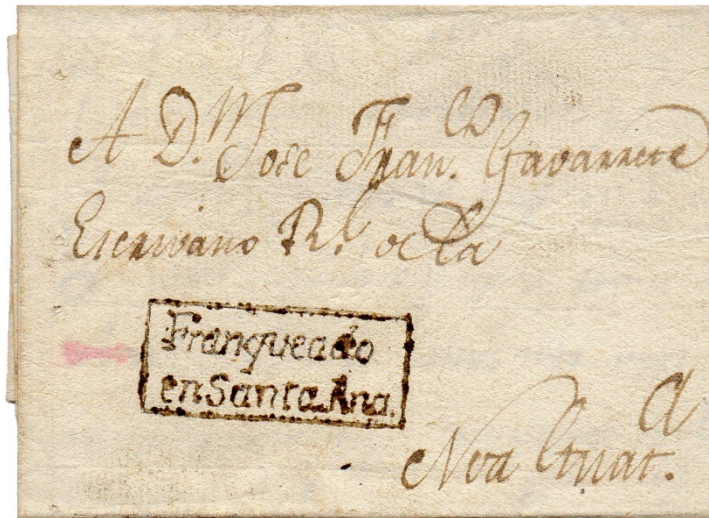 A D.n Jose Fran.co Gavarrete
Escrivano R.l de la
Franqueado
en Santa Ana.
Nva Guat.a